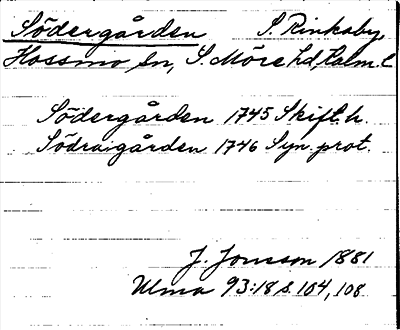 Södergården S. Rinkaby,
Hossmo sn, S. Möre hd, Kalm. l
Södergården 1745 Skift. h.
Södra gården 1746 Syn. prot.
J. Jonsson 1881
Ulma 93:18 s. 104, 108